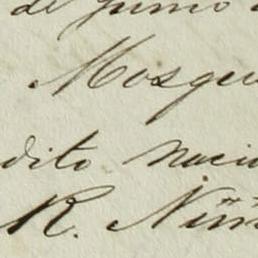 de junio
Mosque
dito Naci
R. Núñ